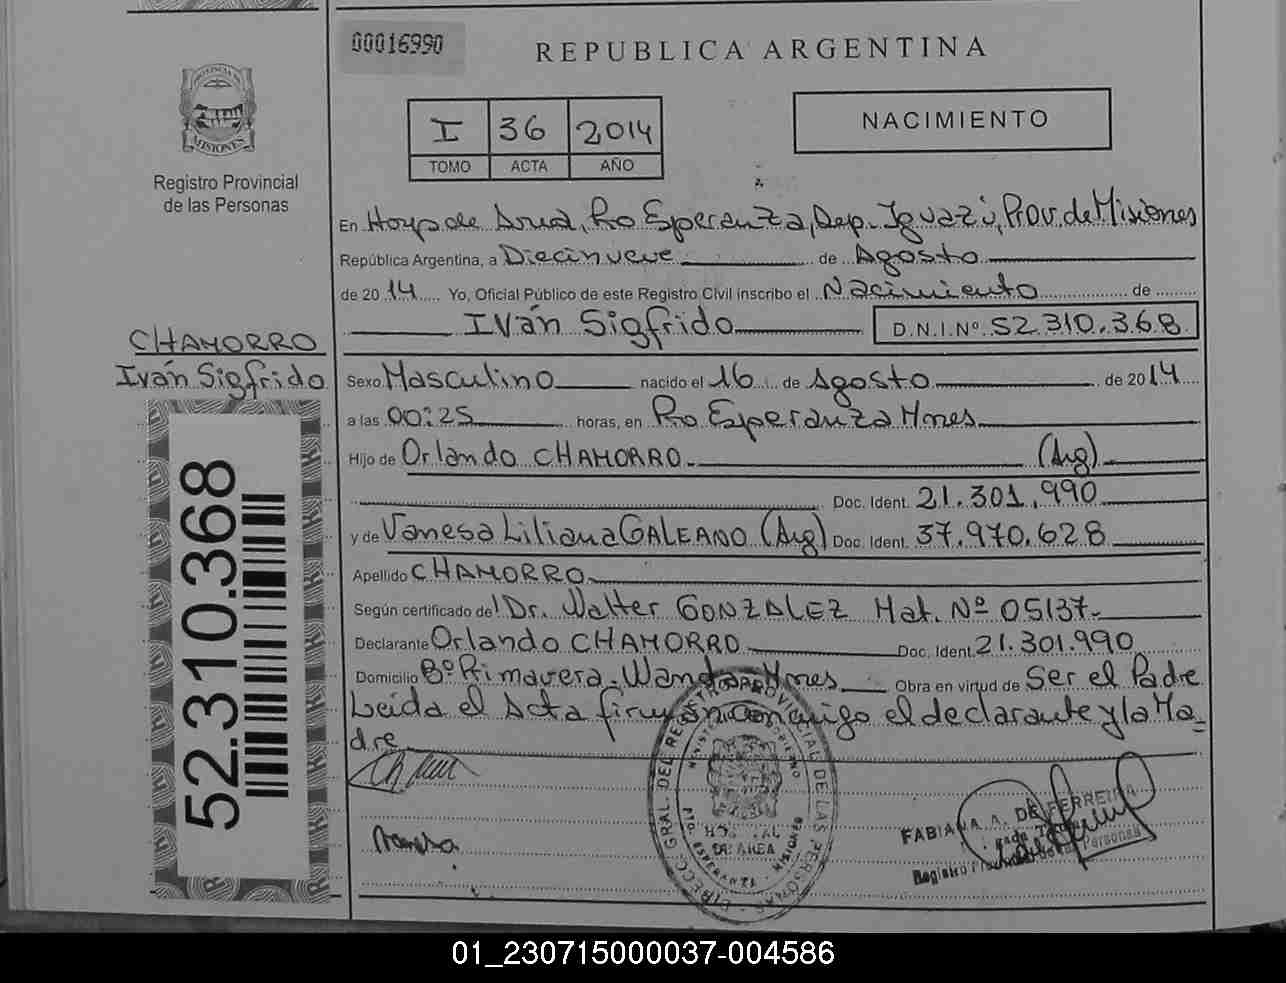 00016990
REPUBLICA ARGENTINA
PROVINCIA DE
MISIONES
Registro Provincial
de las Personas
I 36 2014
TOMO ACTA AÑO
NACIMIENTO
En Hosp de Area, Pto Esperanza, Dep. Iguazú, Prov. de Misiones
República Argentina, a Diecinueve de Agosto
de 2014 Yo, Oficial Público de este Registro Civil inscribo el Nacimiento de
Iván Sigfrido D.N.I.Nº 52.310.368
CHAMORRO
Iván Sigfrido
Sexo Masculino nacido el 16 de Agosto de 2014
a las 00:25 horas, en Pto Esperanza Mnes
Hijo de Orlando CHAMORRO (Arg)
Doc. Ident. 21.301.990
y de Vanesa Liliana GALEANO (Arg) Doc. Ident. 37.970.628
Apellido CHAMORRO
Según certificado de Dr. Walter GONZALEZ Mat. Nº 05137
Declarante Orlando CHAMORRO Doc. Ident. 21.301.990
Domicilio Bº Primavera. Wanda Mnes Obra en virtud de Ser el Padre
Leída el Acta firman conmigo el declarante y la Ma-
dre
52.310.368
DIRECC. GRAL. DEL REGISTRO PROVINCIAL DE LAS PERSONAS
HOSPITAL
DE AREA
PTO. ESPERANZA - MISIONES
FABIANA A. DE FERREIRA
Registro Provincial de las Personas
01_230715000037-004586